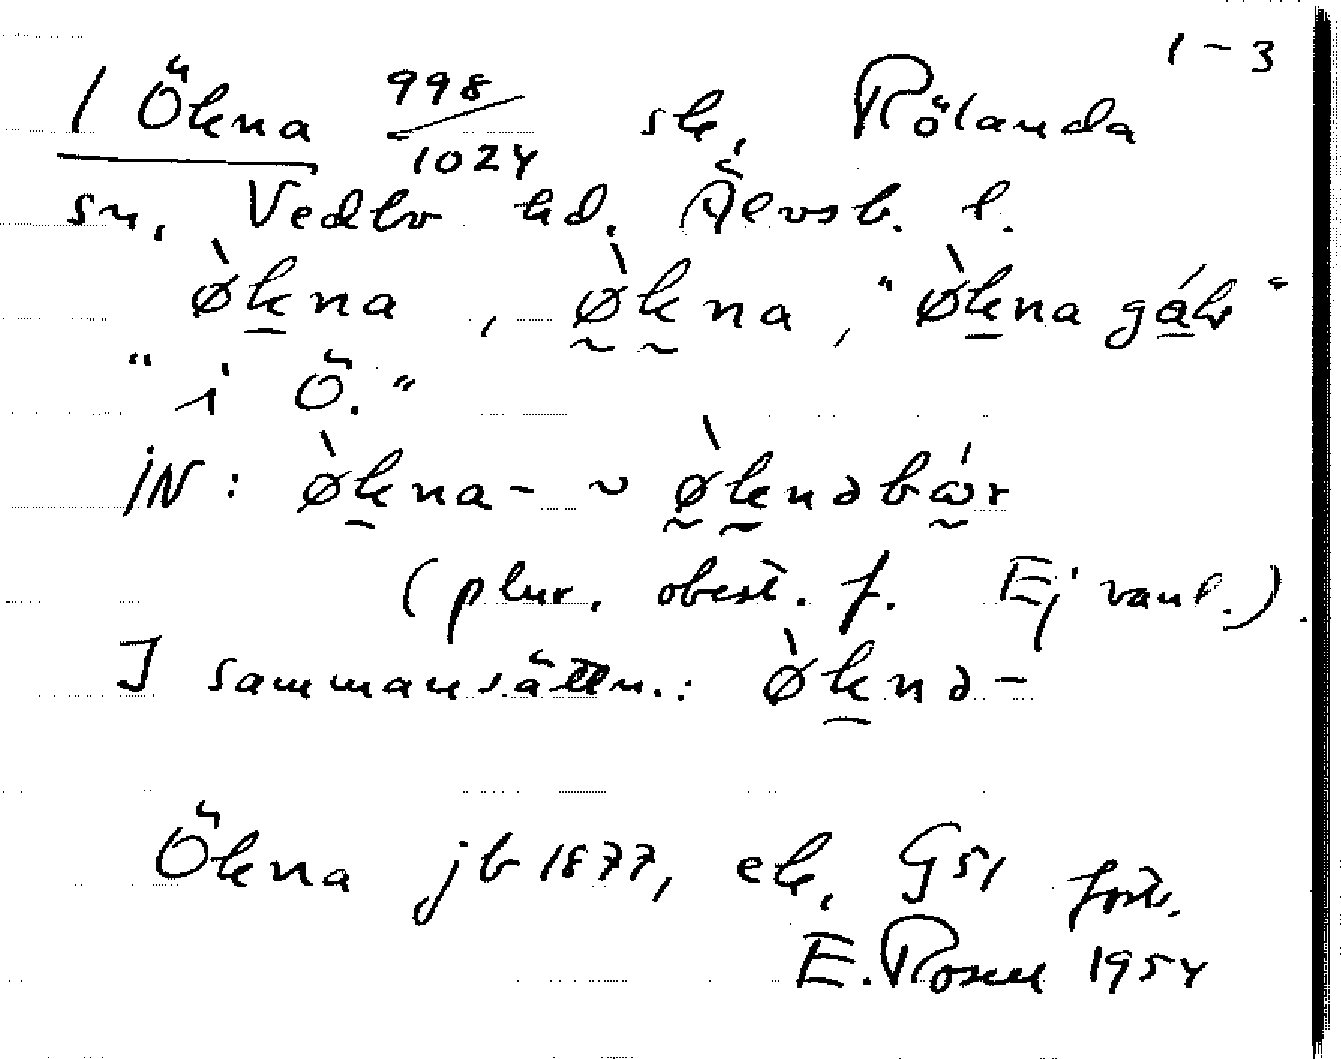 1-3
1 Ökna 998/1024 sk, Rölanda
sn, Vedbo hd. Älvsb. l.
ø̀kna, ø̀kna, "ø̀kna gáɫɩ"
"i Ö."
IN: ø̀kna- ~ ø̀knəbáɷr
(plur. obest. f. Ej vanl.).
I sammansättn.: ø̀knə-
Ökna jb 1877, ek, G51 fört.
E. Rosell 1954